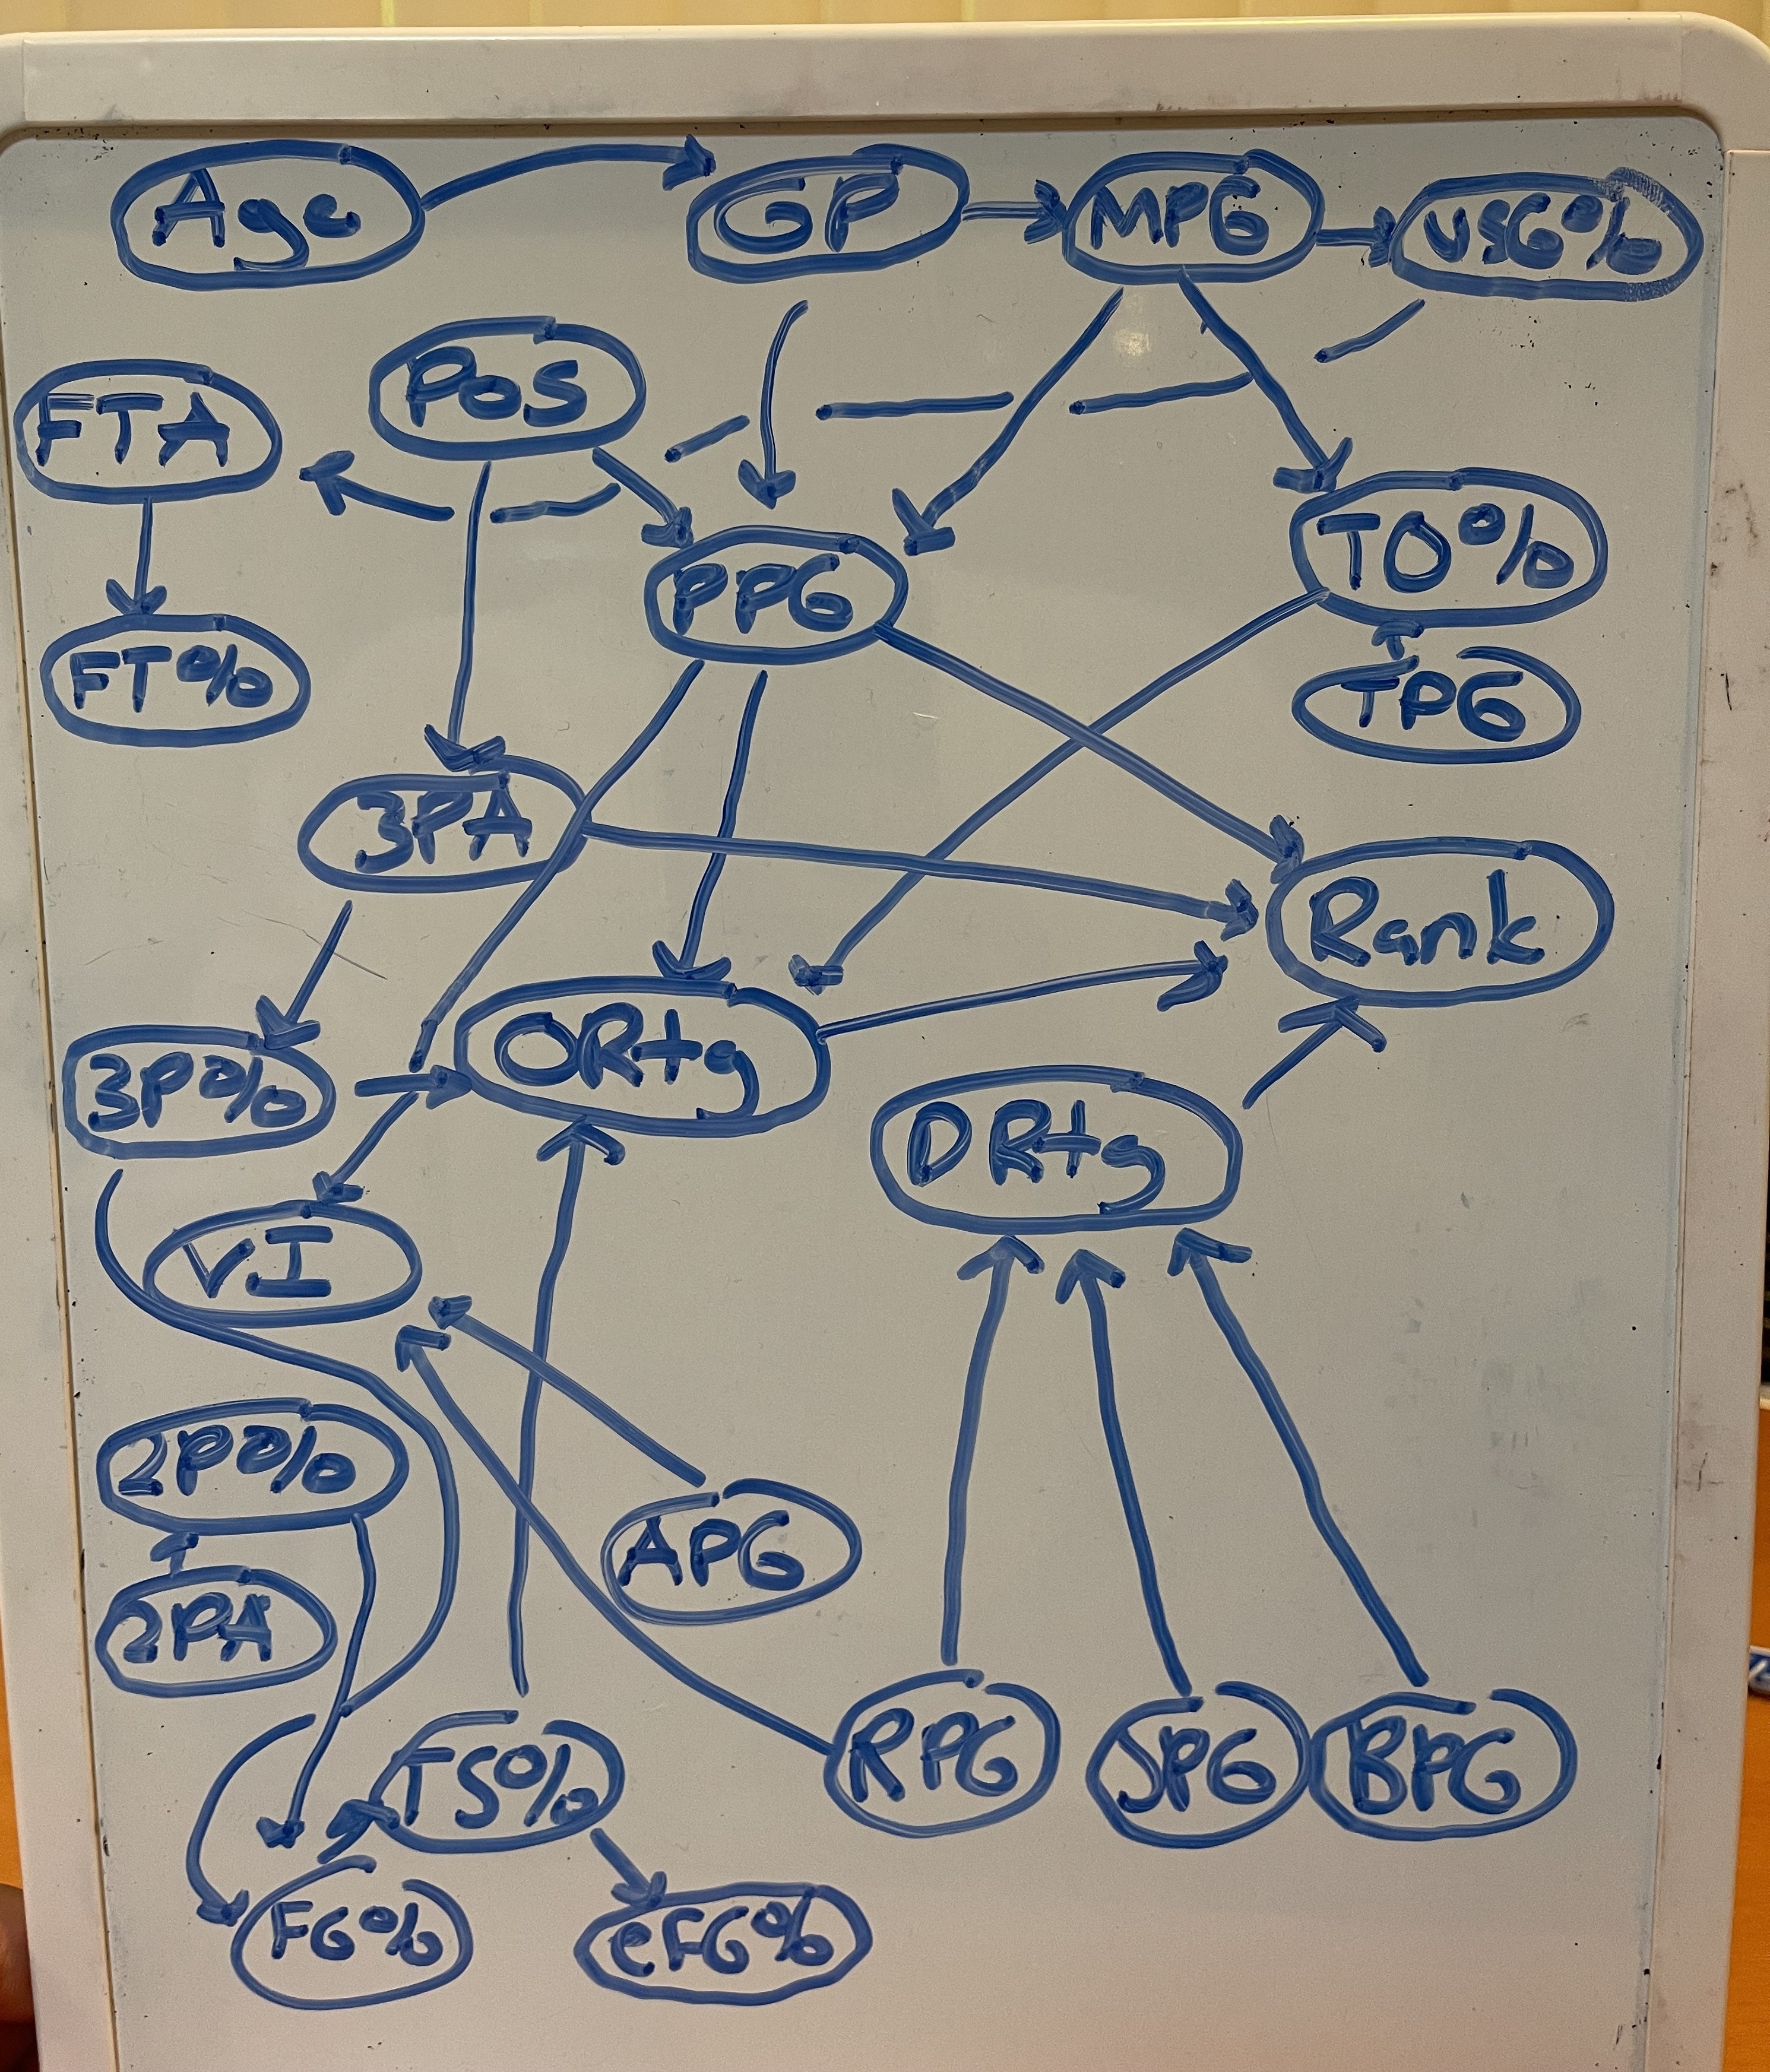 Age
GP
MPG
USG%
Pos
FTA
TO%
PPG
FT%
TPG
3PA
Rank
ORtg
3P%
DRtg
VI
2P%
APG
2PA
TS%
RPG
SPG
BPG
FG%
eFG%